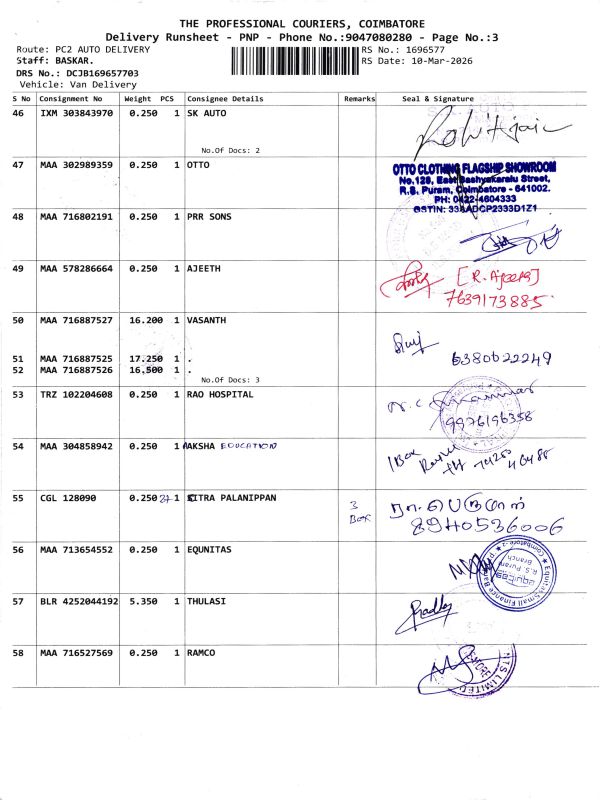 THE PROFESSIONAL COURIERS, COIMBATORE
Delivery Runsheet - PNP - Phone No.:9047080280 - Page No.:3
Route: PC2 AUTO DELIVERY RS No.: 1696577
Staff: BASKAR. RS Date: 10-Mar-2026
DRS No.: DCJB169657703
Vehicle: Van Delivery
S No Consignment No Weight PCS Consignee Details Remarks Seal & Signature
46 IXM 303843970 0.250 1 SK AUTO
Rohit Jain
No.Of Docs: 2
47 MAA 302989359 0.250 1 OTTO
OTTO CLOTHING FLAGSHIP SHOWROOM
No.128, East Bashyakaralu Street,
R.S. Puram, Coimbatore - 641002.
PH: 0422-4604333
GSTIN: 33AADCP2333D1Z1
48 MAA 716802191 0.250 1 PRR SONS
49 MAA 578286664 0.250 1 AJEETH
[R. Ajeeth]
7639173885
50 MAA 716887527 16.200 1 VASANTH
51 MAA 716887525 17.250 1 .
6380622249
52 MAA 716887526 16.500 1 .
No.Of Docs: 3
53 TRZ 102204608 0.250 1 RAO HOSPITAL
9976196358
54 MAA 304858942 0.250 1 AAKSHA EDUCATION
1 Box
55 CGL 128090 0.250 1 SITRA PALANIPPAN
3 Box
8940536006
56 MAA 713654552 0.250 1 EQUNITAS
Equitas Small Finance Bank
R.S. Puram
Branch
Coimbatore
57 BLR 4252044192 5.350 1 THULASI
58 MAA 716527569 0.250 1 RAMCO
LIMITED